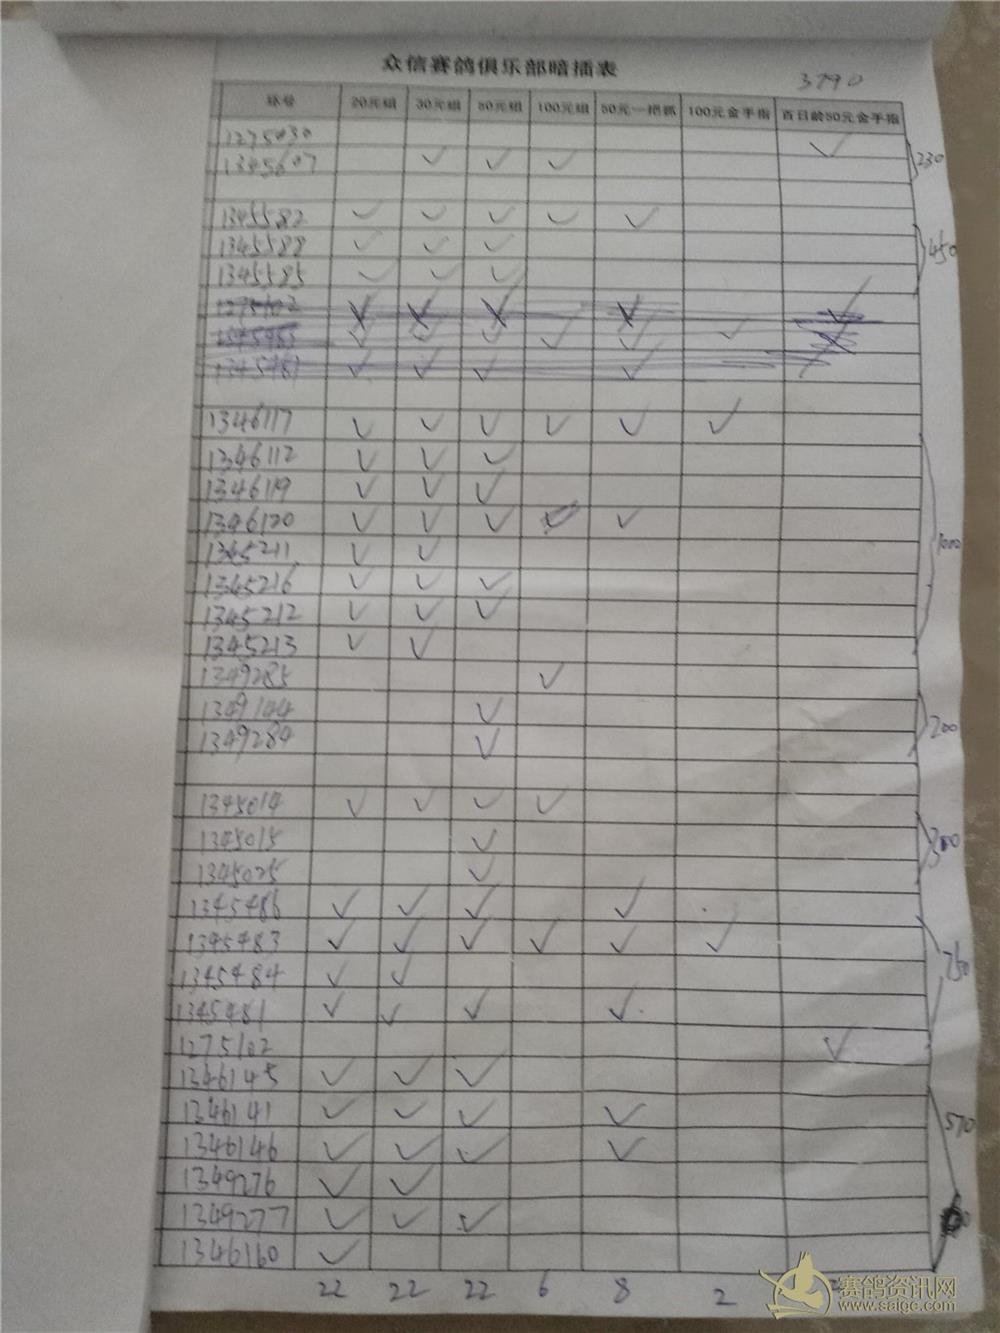 众信赛鸽俱乐部暗插表
3790
环号 20元组 30元组 50元组 100元组 50元一把抓 100元金手指 百日龄50元金手指
1275030 ✓
1345607 ✓ ✓ ✓
230
1345582 ✓ ✓ ✓ ✓ ✓
1345588 ✓ ✓ ✓
450
1345585 ✓ ✓ ✓
1346117 ✓ ✓ ✓ ✓ ✓ ✓
1346112 ✓ ✓ ✓
1346119 ✓ ✓ ✓
1346120 ✓ ✓ ✓ ✓
1345211 ✓ ✓
1000
1345216 ✓ ✓ ✓
1345212 ✓ ✓ ✓
1345213 ✓ ✓
1349285 ✓
1349144 ✓
200
1349284 ✓
1345014 ✓ ✓ ✓ ✓
1345015 ✓
300
1345025 ✓
1345486 ✓ ✓ ✓ ✓
1345483 ✓ ✓ ✓ ✓ ✓ ✓
760
1345484 ✓ ✓
1345481 ✓ ✓ ✓ ✓
1275102 ✓
1346145 ✓ ✓ ✓
1346141 ✓ ✓ ✓ ✓
570
1346146 ✓ ✓ ✓ ✓
1349276 ✓ ✓
1349277 ✓ ✓ ✓
1346160 ✓
22 22 22 6 8 2
赛鸽资讯网
www.saige.com